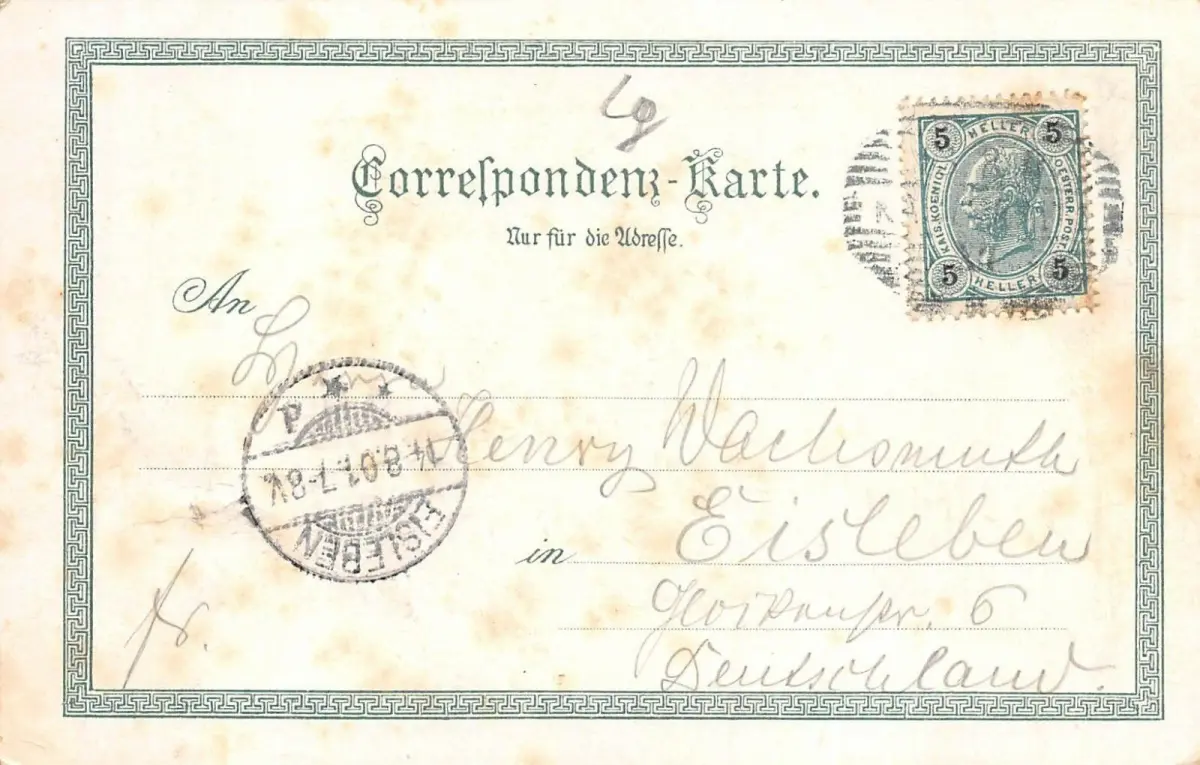 Correspondenz-Karte.
Nur für die Adresse.
5 HELLER 5
KAIS. KOENIGL. OESTERR. POST
5 HELLER 5
An
Herrn
Henry Wachsmuth
in Eisleben
6
Deutschland.
fr.
EISLEBEN
14.8.01.7-8V.